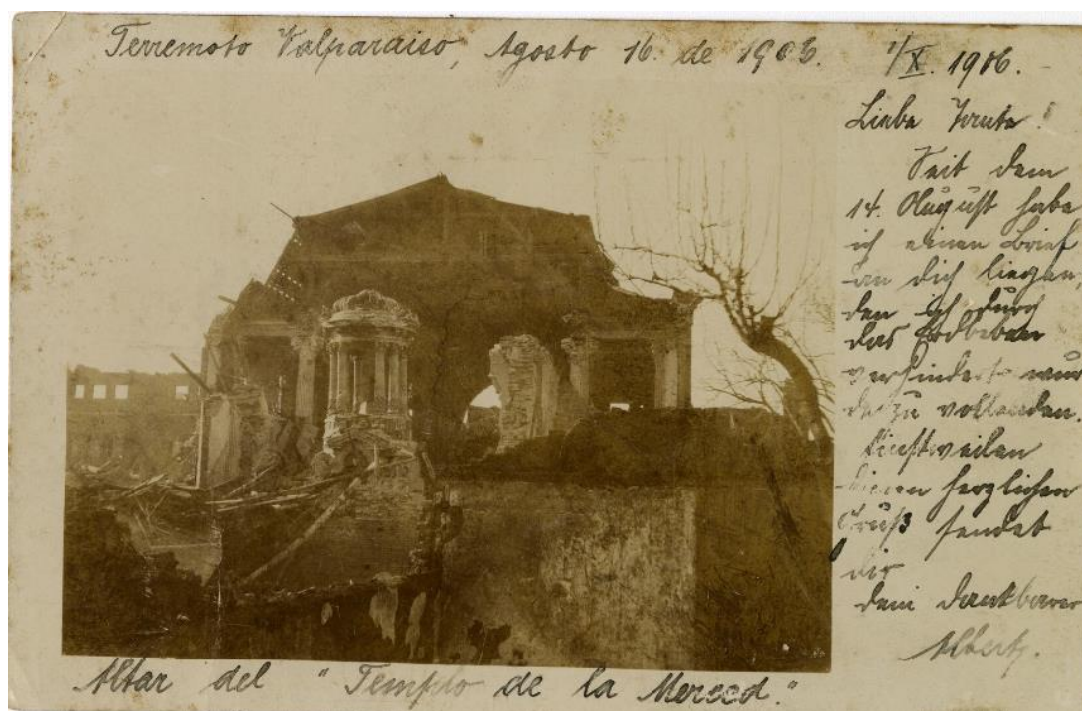 Terremoto Valparaiso, Agosto 16. de 1906.
1/X. 1906.
Liebe Tante!
Seit dem
14. August habe
ich einen Brief
an dich liegen,
den ich durch
das Erdbeben
verhindert wur
de zu vollenden.
Einstweilen
einen herzlichen
Gruß sendet
dir
dein dankbarer
Albert.
Altar del "Templo de la Merced."